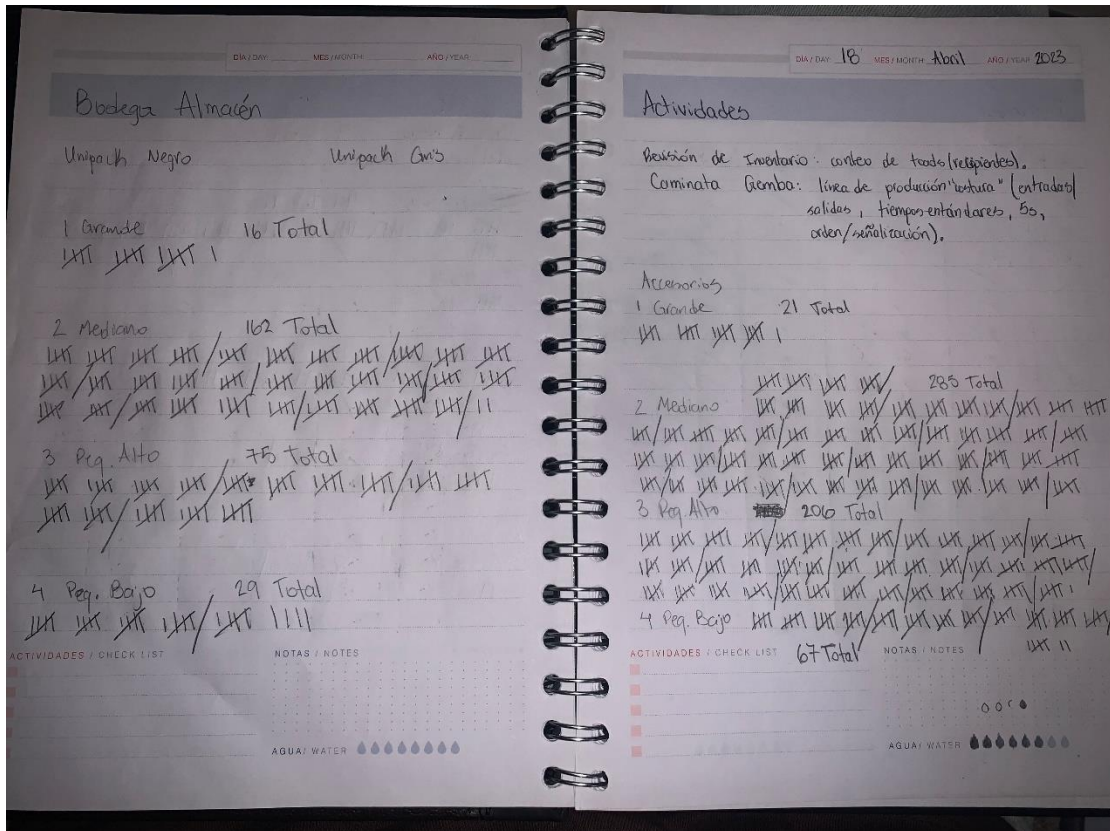 DÍA / DAY MES / MONTH AÑO / YEAR
Bodega Almacén
Unipack Negro Unipack Gris
1 Grande 16 Total
2 Mediano 162 Total
3 Peq. Alto 75 Total
4 Peq. Bajo 29 Total
ACTIVIDADES / CHECK LIST
NOTAS / NOTES
AGUA / WATER
DÍA / DAY 18 MES / MONTH Abril AÑO / YEAR 2023
Actividades
Revisión de Inventario: conteo de toads (recipientes).
Caminata Gemba: línea de producción "costura" (entradas/
salidas, tiempos entándares, 5s,
orden/señalización).
Accesorios
1 Grande 21 Total
285 Total
2 Mediano
3 Peq. Alto 206 Total
4 Peq. Bajo
67 Total
ACTIVIDADES / CHECK LIST
NOTAS / NOTES
AGUA / WATER